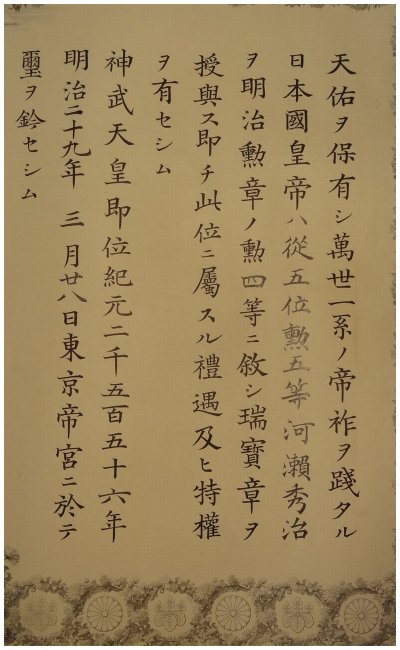 天佑ヲ保有シ萬世一系ノ帝祚ヲ踐タル
日本國皇帝ハ從五位勲五等河瀨秀治
ヲ明治勲章ノ勲四等ニ敘シ瑞寶章ヲ
授與ス即チ此位ニ屬スル禮遇及ヒ特權
ヲ有セシム
神武天皇即位紀元二千五百五十六年
明治二十九年三月廿八日東京帝宮ニ於テ
璽ヲ鈐セシム